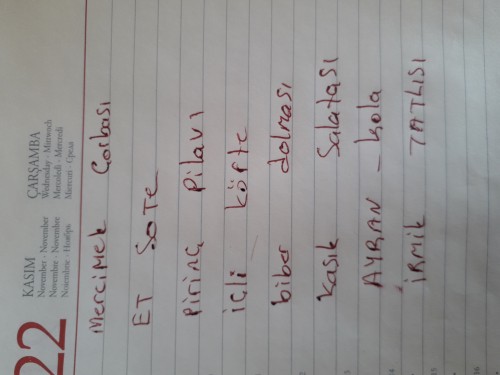 22
KASIM
November · November
Novembre · Novembre
Noiembrie · Ноябрь
ÇARŞAMBA
Wednesday · Mittwoch
Mercoledi · Mercredi
Miercuri · Среда
Mercimek Çorbası
ET SOTE
Pirinç Pilavı
içli köfte
biber dolması
Kaşık Salatası
AYRAN - kola
İRMİK TATLISI